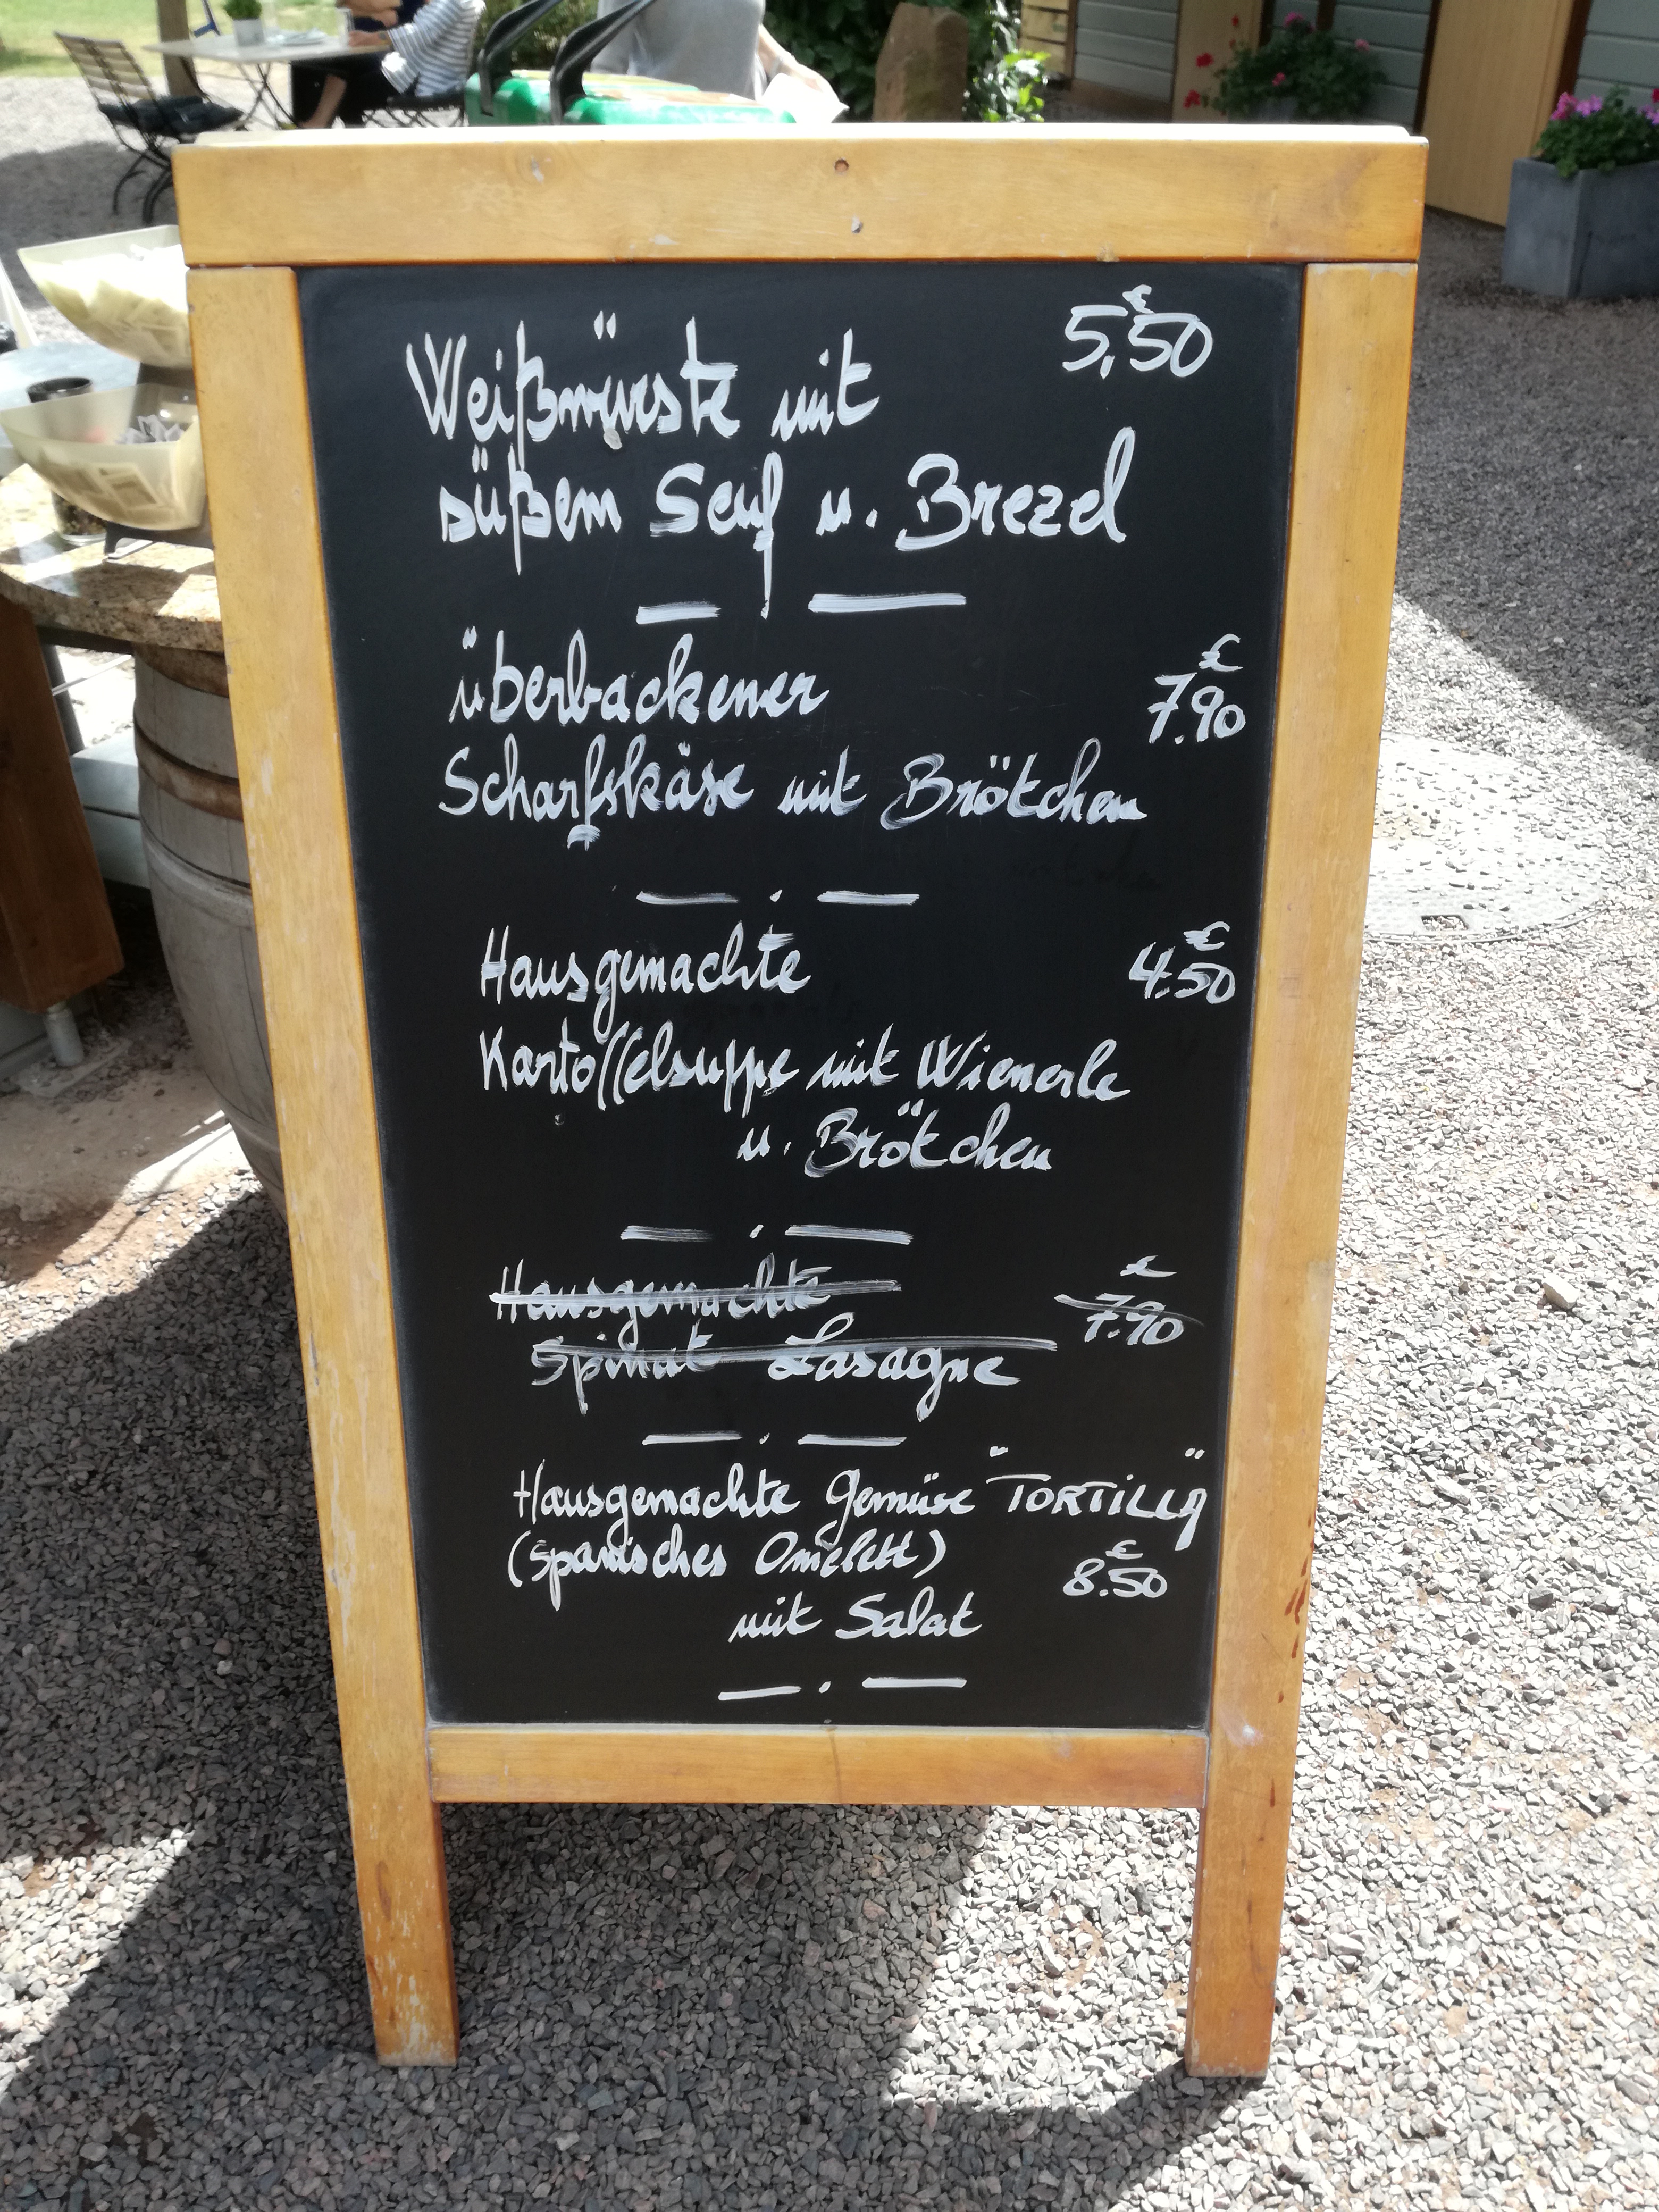 Weißwürste mit € 5,50
süßem Senf u. Brezel
überbackener € 7.90
Schafskäse mit Brötchen
Hausgemachte € 4.50
Kartoffelsuppe mit Wienerle
u. Brötchen
Hausgemachte € 7.90
Spinat Lasagne
Hausgemachte Gemüse "TORTILLA"
(Spanisches Omelett) € 8.50
mit Salat